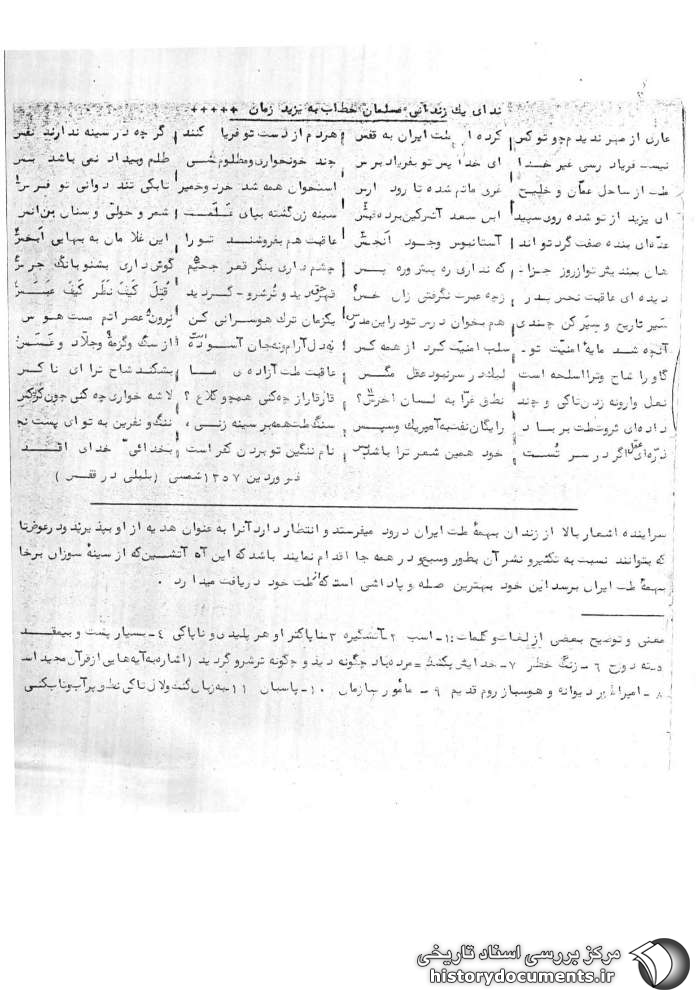 ندای یک زندانی مسلمان خطاب به یزید زمان +++++
عاری از مهر ندیدم چو تو کس کرده‌ای ملت ایران به قفس هردم از دست تو فریاد کنند گر چه در سینه ندارند نفس
نیست فریاد رسی غیر خدا ای خدا پس تو بفریاد برس چند خونخواری و مظلوم کشی ظلم و بیداد نمی باشد بس
ملت از ساحل عمان و خلیج غرق ماتم شده تا رود ارس استخوان همه شد خرد و خمیر تا بکی تند دوانی تو فرس
ای یزید از تو شده روی سپید ابن سعد آن سینه زن گشته بپای علمت شمر و خولی و سنان بن انس
عده‌ای بنده صفت گرد تواند آستانبوس وجود انجس عاقبت هم بفروشند تو را این غلامان به بهایی ابخس
هان بیندیش تو از روز جزا که نداری ره پیش و ره پس چشم داری بنگر قعر جحیم گوش داری بشنو بانگ جرس
دیده‌ای عاقبت نحس پدر ز چه عبرت نگرفتی زان خس قهر حق دید و ترشرو گردید قتل کیف نظر کیف عبس
سیر تاریخ و سیر کن چندی هم بخوان درس تو در این مدرس یکزمان ترک هوسرانی کن نرون عصر اتم مست هوس
آنچه شد مایه امنیت تو سلب امنیت کرد از همه کس نه دل آرام و نه جان آسوده از سگ و گزمه و جلاد و عسس
گاو را شاخ و ترا اسلحه است لیک در سر نبود عقل مگس عاقبت ملت آزاده ما بشکند شاخ ترا ای ناکس
نعل وارونه زدن تاکی و چند نطق غرا به لسان اخرس؟ قارقار از چه کنی همچو کلاغ؟ لاشه خواری چه کنی چون کرکس
داده‌ای ثروت ملت بر باد رایگان نفت به آمریک و سپس سنگ ملت همه بر سینه زنی ننگ و نفرین به تو ای پست نجس
ذره‌ای عقل اگر در سر تست خود همین شعر ترا باشد بس نام ننگین تو بردن کفر است بخدائی خدای اقدس
فروردین ۱۳۵۷ شمسی (بلبلی در قفس)
سراینده اشعار بالا از زندان بهمه ملت ایران درود میفرستد و انتظار دارد آنرا به عنوان هدیه از او بپذیرند و در عوض تا
که بتوانند نسبت به تکثیر و نشر آن بطور وسیع و در همه جا اقدام نمایند باشد که این آه آتشین که از سینه سوزان برخا
بهمه ملت ایران برسد این خود بهترین صله و پاداشی است که از ملت خود دریافت میدارد.
معنی و توضیح بعضی از لغات و کلمات: ۱- اسب ۲- آتشگیره ۳- ناپاکتر از هر پلیدی و ناپاکی ۴- بسیار پست و بیمقد
دسته دوزخ ۶- زنگ خطر ۷- خدایش بکشت = مرده باد چگونه دید و چگونه ترشرو گردید (اشاره به آیه‌هایی از قرآن مجید است
۸- امپراطور دیوانه و هوسباز روم قدیم ۹- مأمور سازمان ۱۰- پاسبان ۱۱- به زبان گنگ و لال تاکی نطق پر آب و تاب بکنی
مرکز بررسی اسناد تاریخی
historydocuments.ir